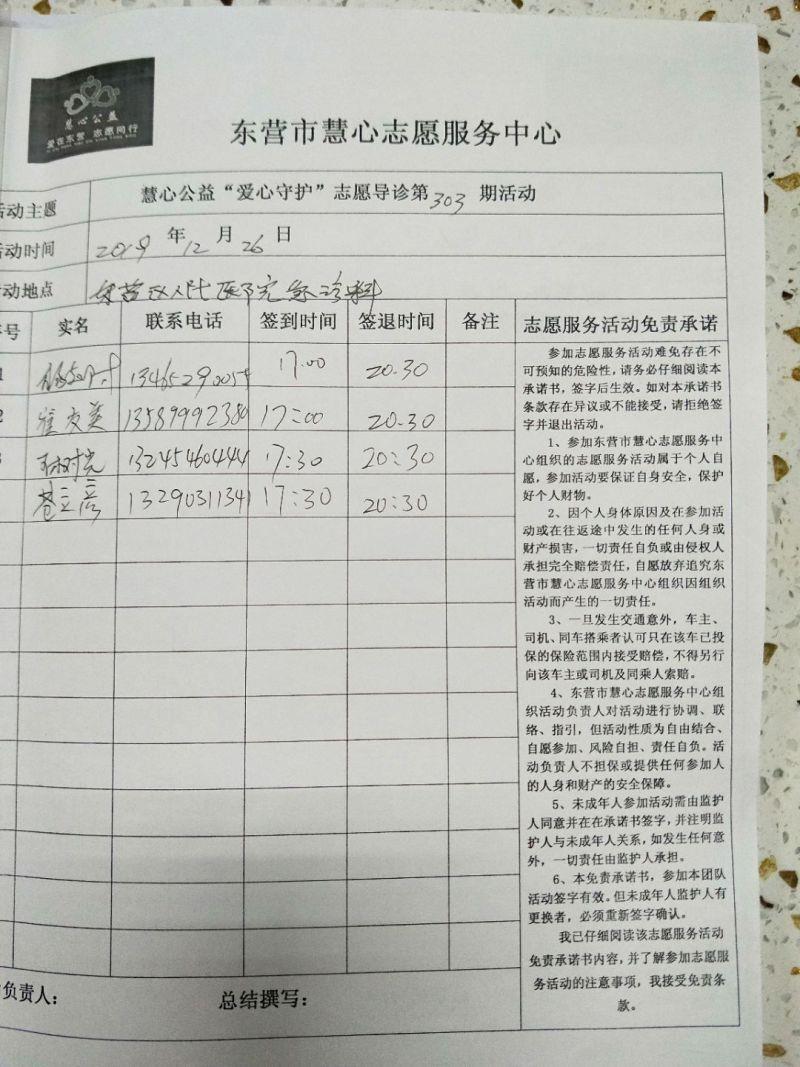 慧心公益
爱在东营 志愿同行
东营市慧心志愿服务中心
活动主题 慧心公益“爱心守护”志愿导诊第303期活动
活动时间 2019年12月26日
动地点 东营区人民医院急诊科
号 实名 联系电话 签到时间 签退时间 备注 志愿服务活动免责承诺
1 13465290054 17.00 20.30
2 崔友英 13589992380 17:00 20.30
13245460444 17:30 20:30
苍立彦 13290311341 17:30 20:30
参加志愿服务活动难免存在不
可预知的危险性，请务必仔细阅读本
承诺书，签字后生效。如对本承诺书
条款存在异议或不能接受，请拒绝签
字并退出活动。
1、参加东营市慧心志愿服务中
心组织的志愿服务活动属于个人自
愿，参加活动要保证自身安全，保护
好个人财物。
2、因个人身体原因及在参加活
动或在往返途中发生的任何人身或
财产损害，一切责任自负或由侵权人
承担完全赔偿责任，自愿放弃追究东
营市慧心志愿服务中心组织因组织
活动而产生的一切责任。
3、一旦发生交通意外，车主、
司机、同车搭乘者认可只在该车已投
保的保险范围内接受赔偿，不得另行
向该车主或司机及同乘人索赔。
4、东营市慧心志愿服务中心组
织活动负责人对活动进行协调、联
络、指引，但活动性质为自由结合、
自愿参加、风险自担、责任自负。活
动负责人不担保或提供任何参加人
的人身和财产的安全保障。
5、未成年人参加活动需由监护
人同意并在在承诺书签字，并注明监
护人与未成年人关系，如发生任何意
外，一切责任由监护人承担。
6、本免责承诺书，参加本团队
活动签字有效。但未成年人监护人有
更换者，必须重新签字确认。
我已仔细阅读该志愿服务活动
免责承诺书内容，并了解参加志愿服
务活动的注意事项，我接受免责条
款。
负责人： 总结撰写：